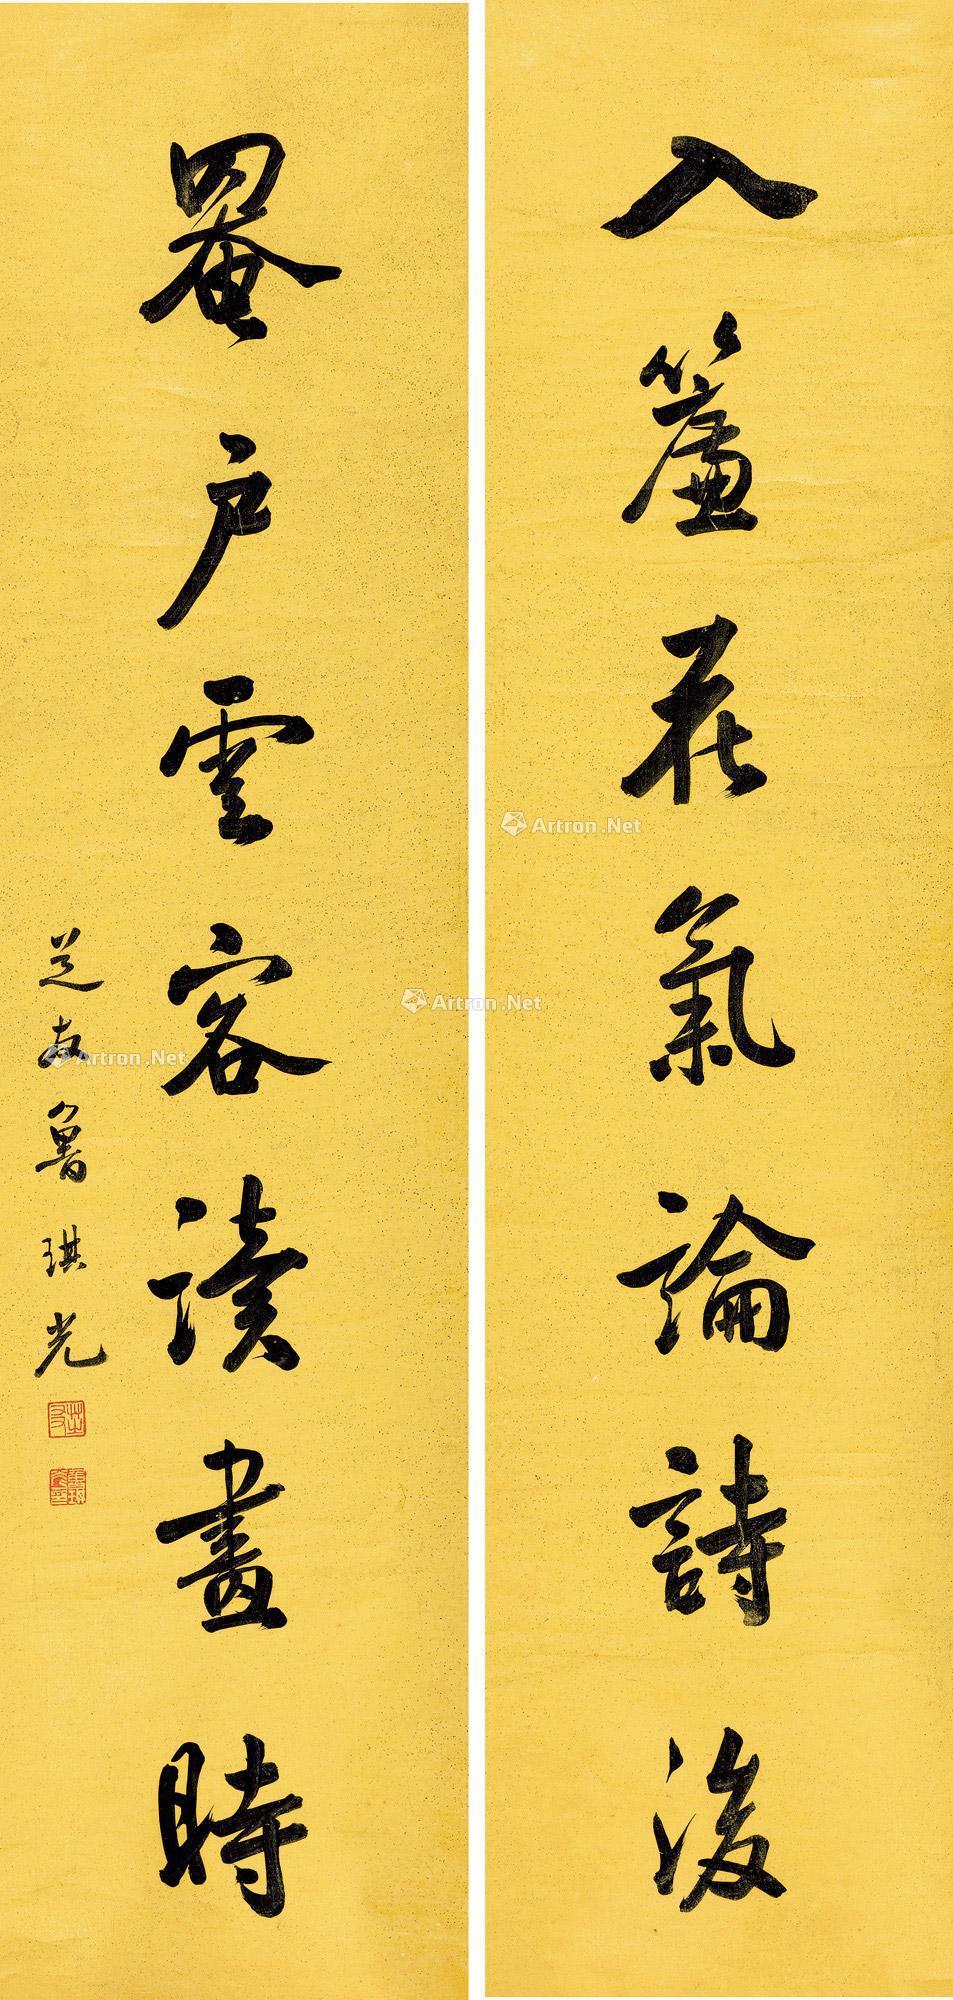 入簾花氣論詩後
罨戶雲容讀畫時
芝友魯琪光
Artron.Net
Artron.Net
Artron.Net